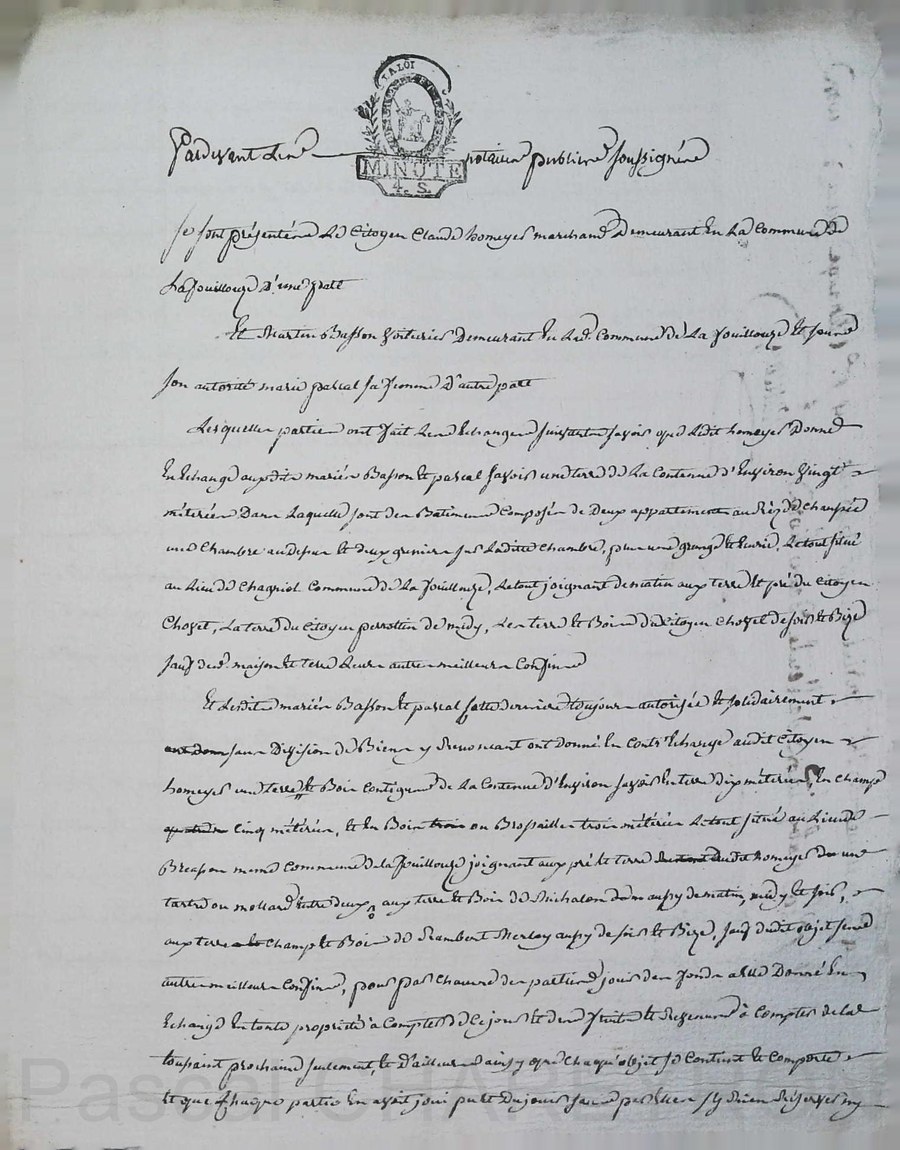 LA LOI
MINUTE
4. S.
Pardevant Les notaires publics soussignés
Se sont présentés Le Citoyen Claude homeyer marchand Demeurant En La Commune De
La fouillouze D'une part
Et Martin Basson Voiturier Demeurant En Lad. Commune De La fouillouze Et sous
son autorité marie pascal sa femme D'autre part
Lesquelles parties ont fait Les Echanges suivants savoir que Ledit homeyer Donne
En Echange auxdits mariés Basson Et pascal savoir une terre De La Contenue d'Environ Vingt
métérées Dans Laquelle sont des Batiments Composés de Deux appartements au Rèz de Chaussée
une Chambre au dessus Et deux greniers sur Laditte Chambre, plus une grange Et Ecurie, Le tout situé
au Lieu de Chagniol Commune de La fouillouze, Le tout joignant de matin aux terre Et pré du Citoyen
Chovet, La terre du Citoyen perrottin de midy, Les terre Et Bois du Citoyen Chovet de soir Et Bize
sauf desd. maison Et terre Leurs autres meilleurs Confins
Et Lesdits mariés Basson Et pascal cette dernière toujours autorisée Et solidairement
sans Division de Biens y Renonceant ont donné En Contr'Echange audit Citoyen
homeyer une terre Et Bois Contigus de La Contenue d'Environ savoir En terre dix métérées, En Champ
Cinq métérées, Et En Bois ou Brossailles trois métérées Le tout situé au Lieu de
même Commune de la fouillouze joignant aux pré Et terre dudit homeyer une
tartre ou mollard Entre deux, aux terre Et Bois de Michalon aussy de matin, midy Et soir,
aux terre Champ Et Bois de Rambert Merley aussy de soir Et Bize, sauf dudit objet ses
autres meilleurs Confins, pour par Chacune des parties jouir des fonds a Elle Donné En
Echange En toute propriété à Compter de Ce jour Et des fruits Et Revenus à Compter de La
toussaint prochaine seulement, Et d'ailleurs ainsy que Chaqu'objet se Contient Et Comporte
Et que Chaque partie En avoit joui pu Et Du jouir sans par Elles s'y Rien Réserver ny
Pascal CHAR